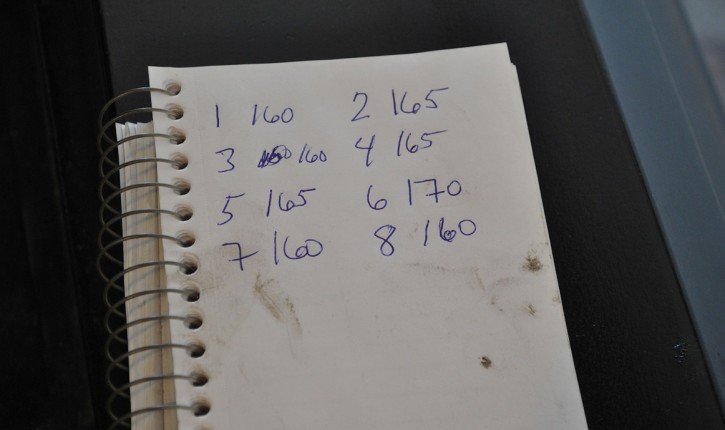 1 160 2 165
3 160 4 165
5 165 6 170
7 160 8 160